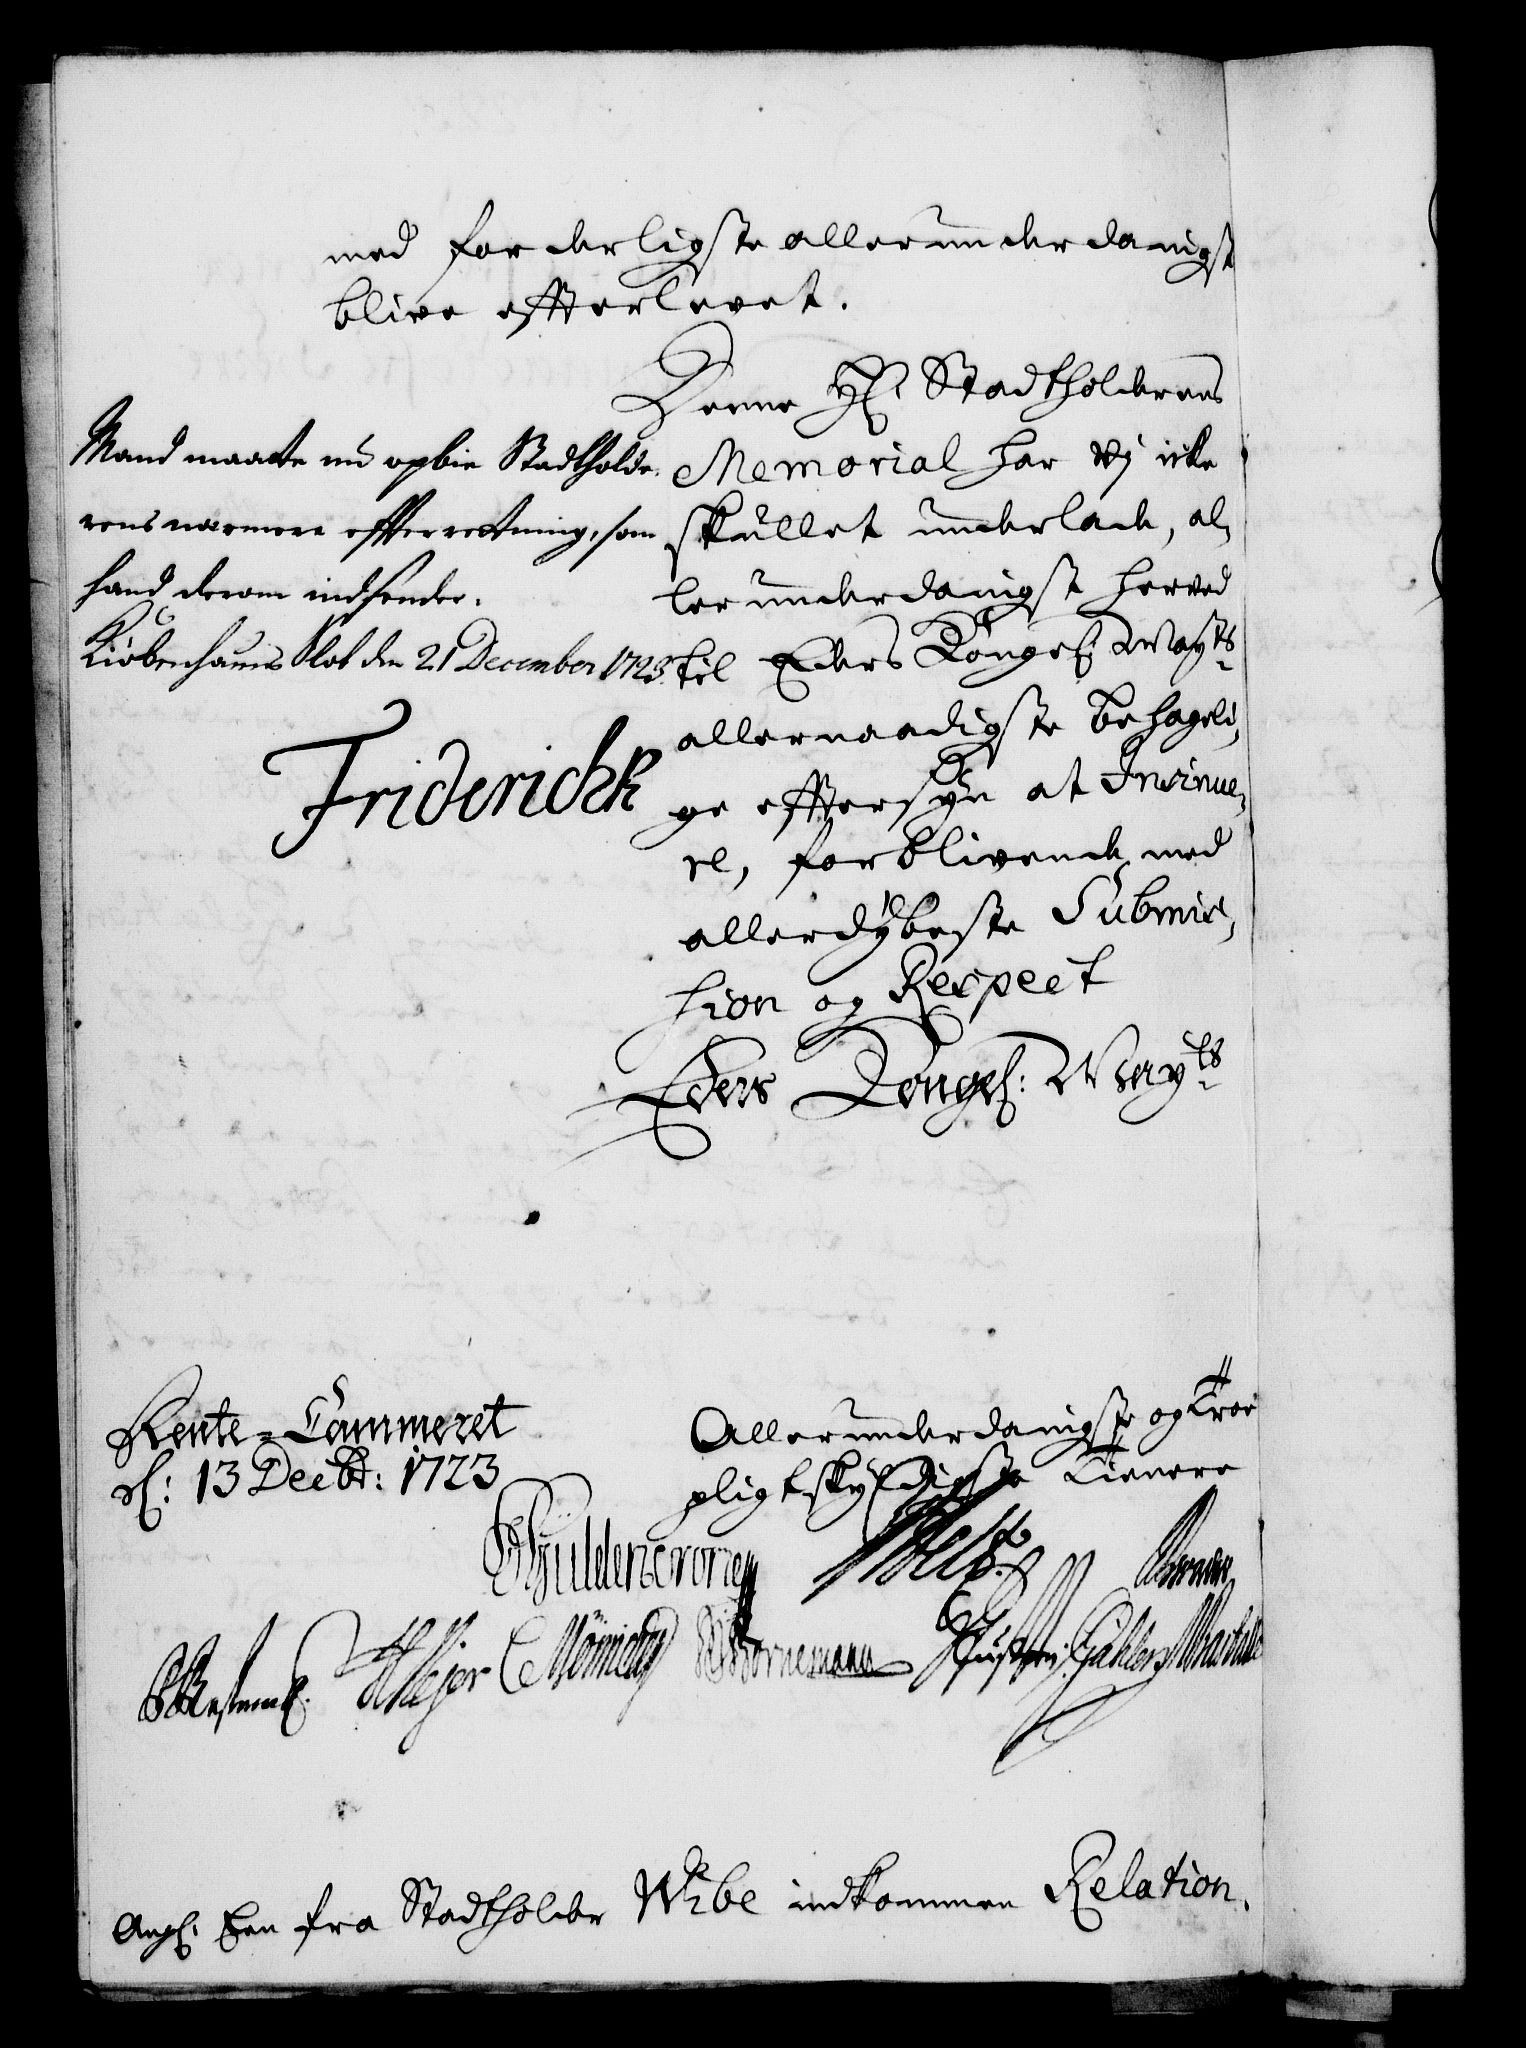 med forderligste allerunderdanigst
blive effterlevet.
Denne H: Stadtholderens
Memorial har vj icke
skullet underlade, al,
lerunderdanigst herved
til Eders Kongel: Mayts
allernaadigste behageli,
ge efftersÿn at Insinue,
re, forblivende med
allerdÿbeste Submis,
sion og Respect
Eders Kongel: Mayts
Mand maatte nu opbie Stadtholde,
rens nærmere effterretning, som
hand derom indsender.
Kiøbenhauns Slot den 21 December 1723.
Friderich R
Rente-Cammeret
d: 13 Decbr: 1723
Allerunderdanigste og troe
pligtskÿldigste tienere
Gÿldencrone
Meÿer C Münnich Bornemann
Ang: Een fra Stadtholder Wibe indkommen Relation.